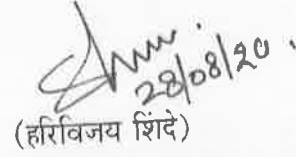 28/08/20
(हरिविजय शिंदे)